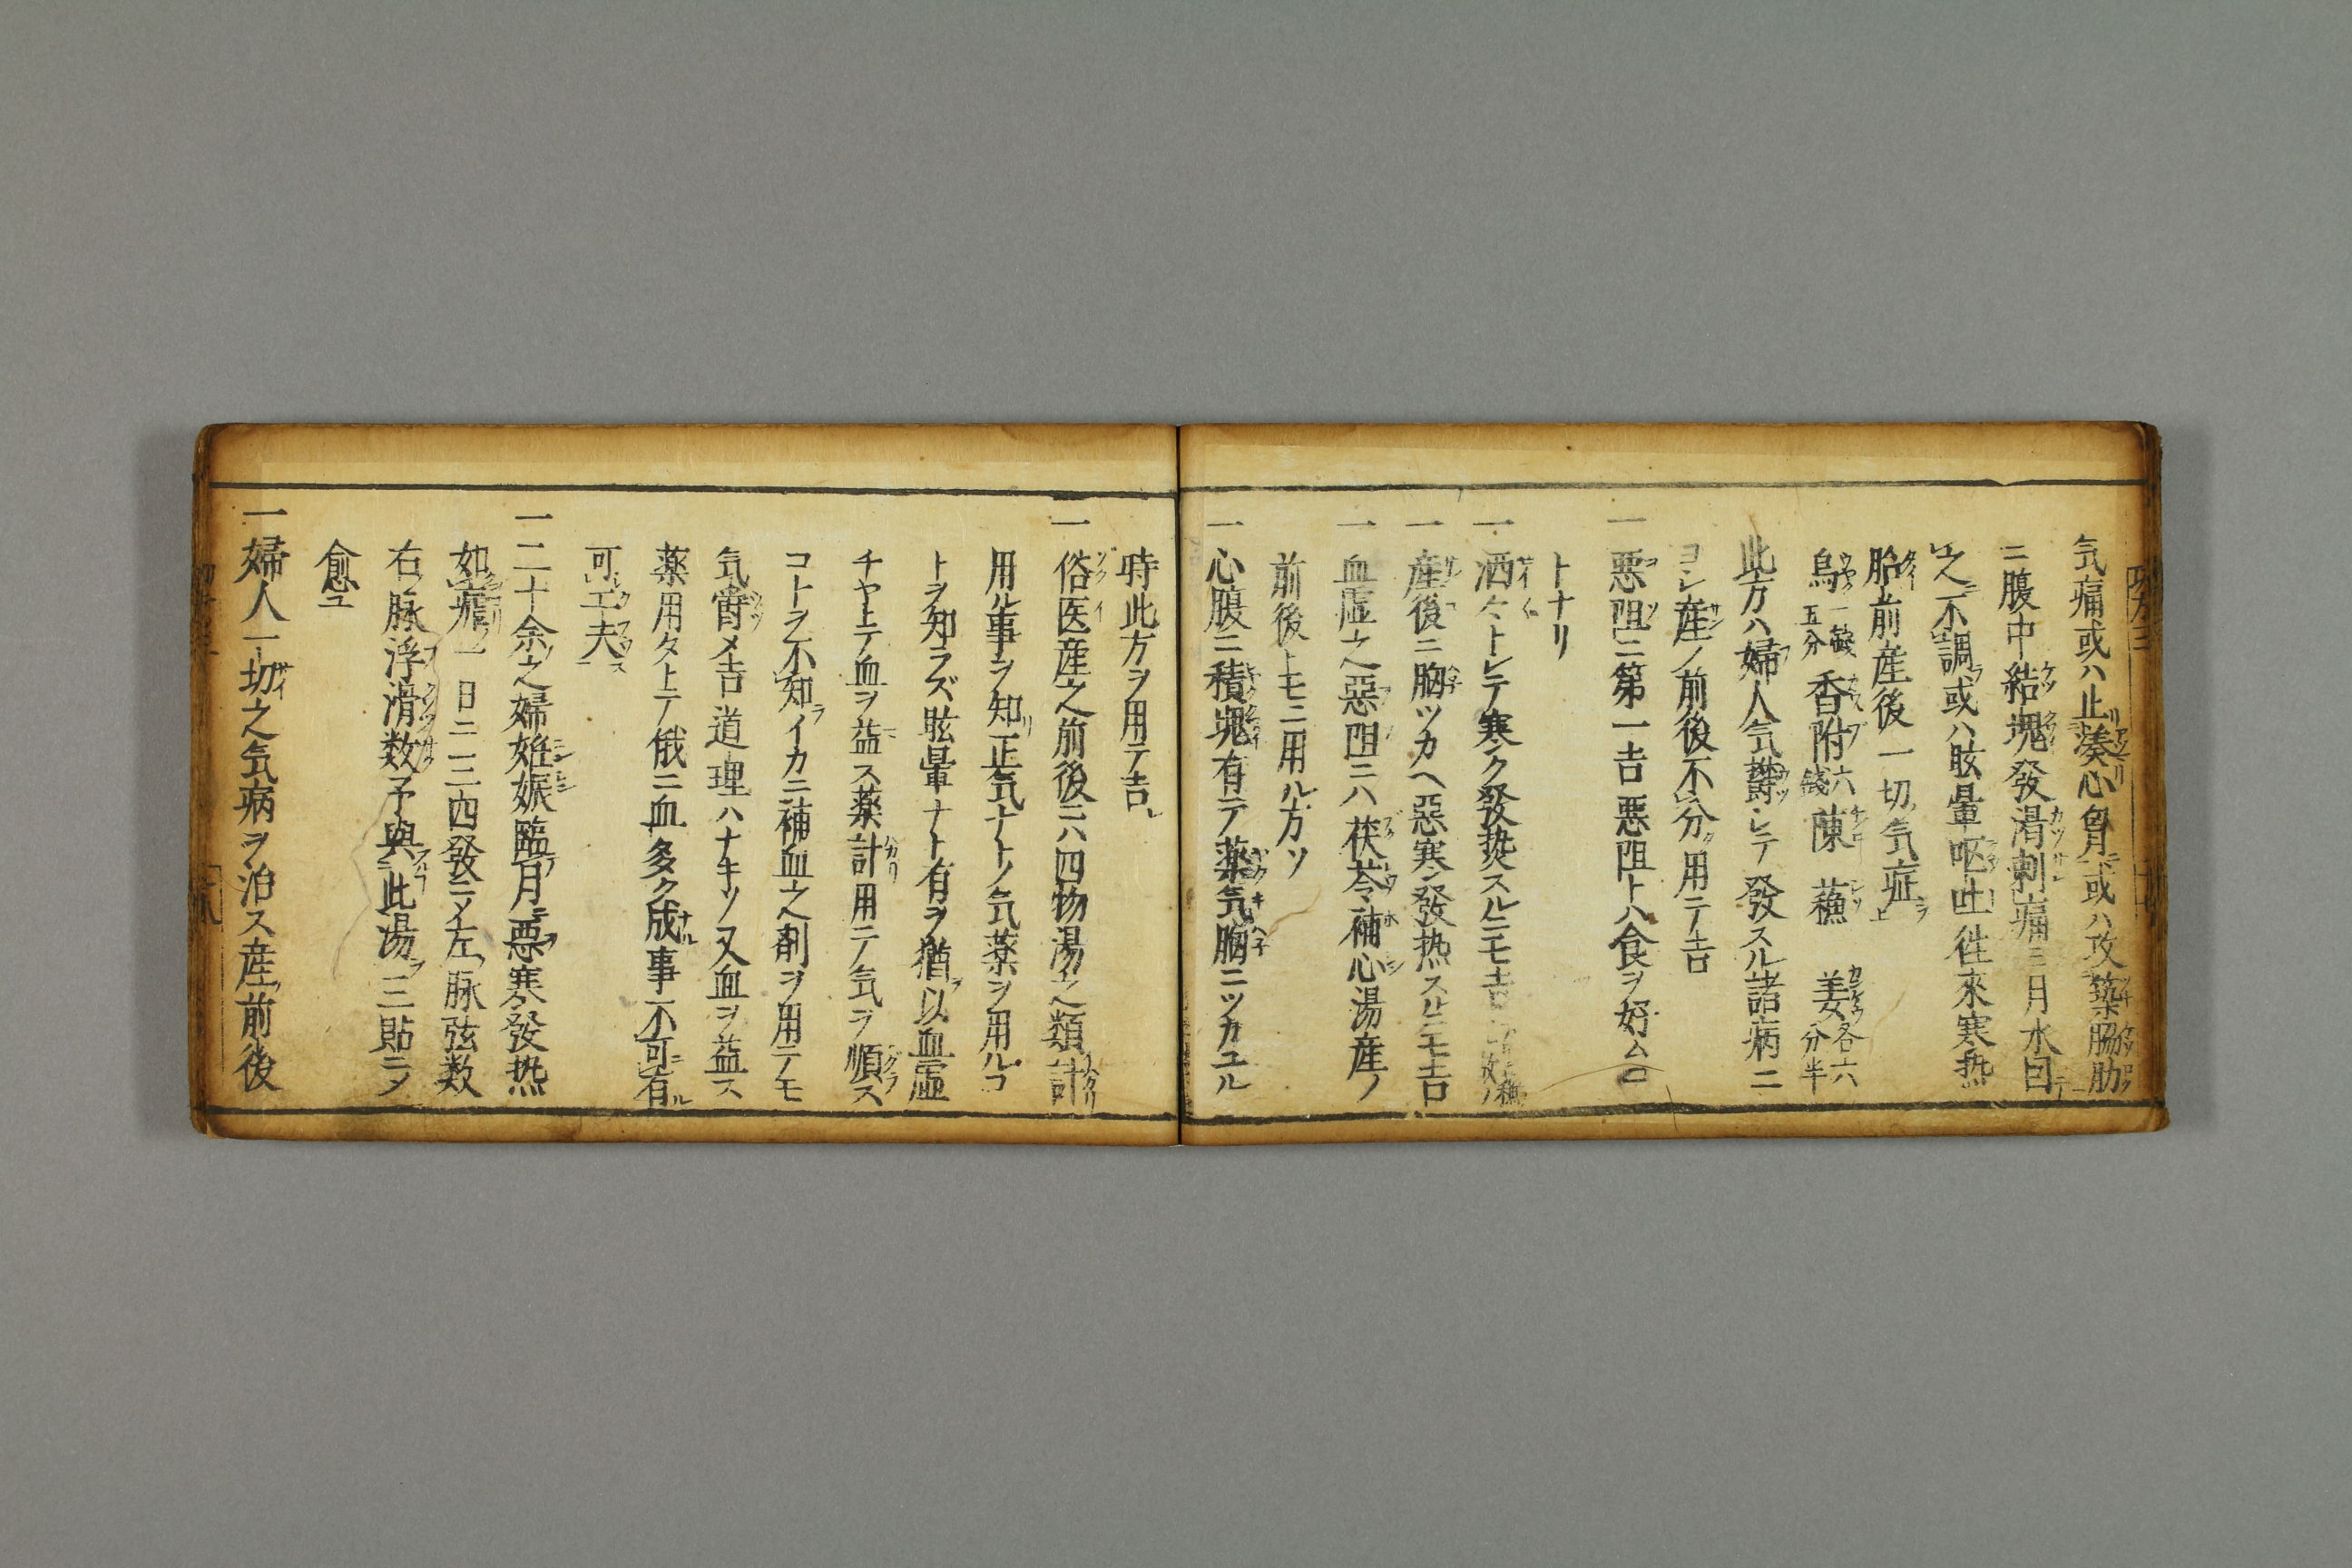 気痛或ハ止湊心胷或ハ攻築脇肋
ニ腹中結塊發滑刺痛三月水回
之不調或ハ眩暈嘔吐往來寒热
胎前産後一切気症
烏一錢五分香附六錢陳蘓姜各六分半
此方ハ婦人気欝シテ發スル諸病ニ
ヨシ産ノ前後不分用テ吉
一悪阻ニ第一吉悪阻トハ食ヲ好ム
トナリ
一洒々トシテ寒ク發热スルニモ吉
一産後ニ胸ツカヘ惡寒發热スルニモ吉
一血虚之惡阻ニハ茯苓補心湯産ノ
前後トモニ用ル方ソ
一心腹ニ積塊有テ薬気胸ニツカユル
時此方ヲ用テ吉
一俗医産之前後ニハ四物湯之類計
用ル事ヲ知正気ナトノ気薬ヲ用ルコ
トヲ知ラズ眩暈ナト有ヲ猶以血虚
チヤトテ血ヲ益ス薬計用テ気ヲ順ス
コトヲ不知イカニ補血之剤ヲ用テモ
気欝メ吉道理ハナキソ又血ヲ益ス
薬用タトテ俄ニ血多ク成事不可有
可工夫
一二十余之婦姙娠臨月惡寒發热
如瘧一日ニ三四發ニメ左脉弦数
右脉浮滑数予與此湯三貼ニメ
愈ユ
一婦人一切之気病ヲ治ス産前後